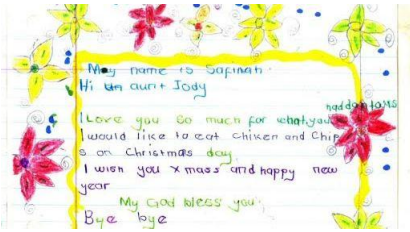 My name is Safinah.
Hi aunt Jody
I Love you So much for what you had don to us
I would like to eat chiken and Chip
s on Christmas day.
I wish you x mass and happy new
year
My God bless you.
Bye bye